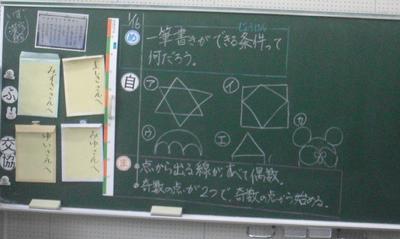 1/16
め
一筆書きができる条件って
何だろう。
自
ア
イ
ウ
エ
オ
ま
点から出る線がすべて偶数。
奇数の点が2つで、奇数の点から始める。
ふ
交協
みずきさんへ
みゆさんへ
ゆいさんへ